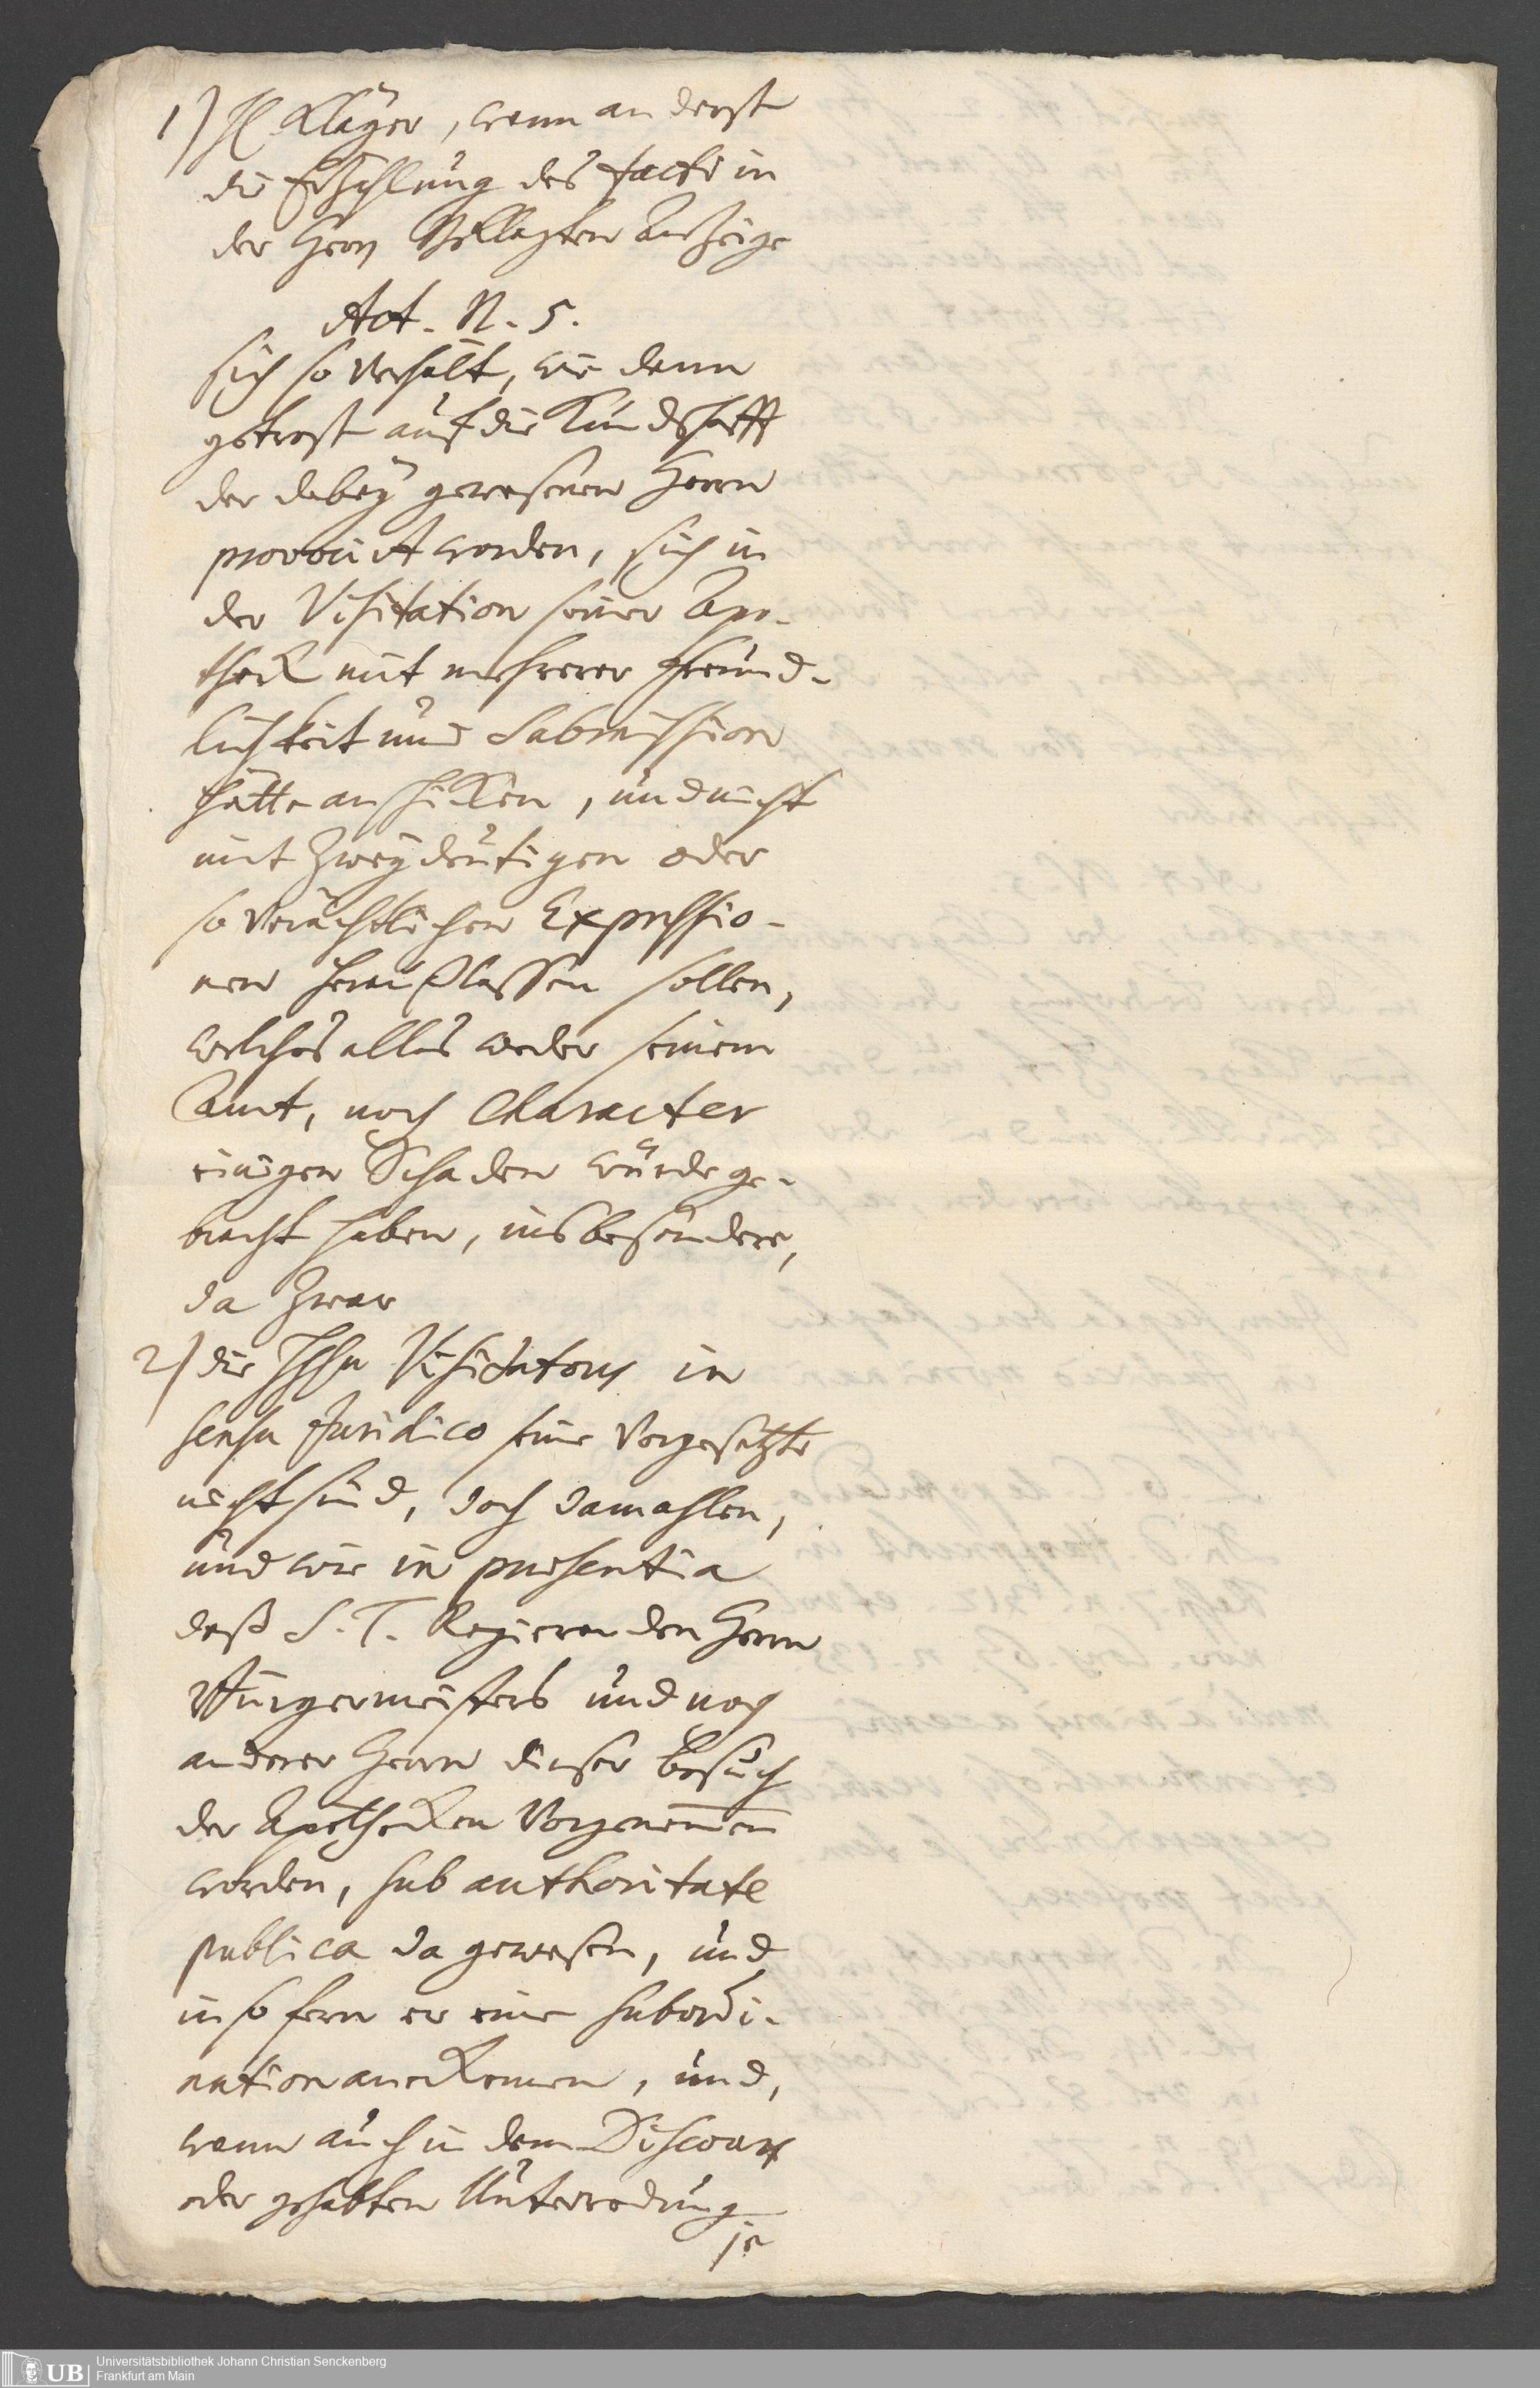 1) H Kläger, wenn anderst
die Erzehlung des facti in
der Herrn Beklagten Anzeige
Act. N. 5.
sich so verhält, wie denn
getrost auf die Kundschafft
der dabey gewesenen Herrn
provocirt worden, sich in
der Visitation seiner Apo-
theck mit mehrerer Freund-
lichkeit und Submission
hätte anschicken, und nicht
mit zweydeutigen oder
so verächtlichen Expressio-
nen heraußlassen sollen,
welches alles weder seinem
Amt, noch Character
einigen Schaden würde ge-
bracht haben, insbesondere,
da zwar
2) die HHn Visitatores in
sensu Juridico seine Vorgesetzte
nicht sind, doch damahlen,
und wie in praesentia
deß S. T. Regierenden Herrn
Burgermeisters und noch
anderer Herrn dieser Besuch
der Apothecken vorgenomen
worden, sub authoritate
publica da gewesen, und
in so fern er eine subordi-
nation anerkennen, und,
wenn auch in dem Discours
oder gehabten Unterredung
je
Universitätsbibliothek Johann Christian Senckenberg
Frankfurt am Main
UB